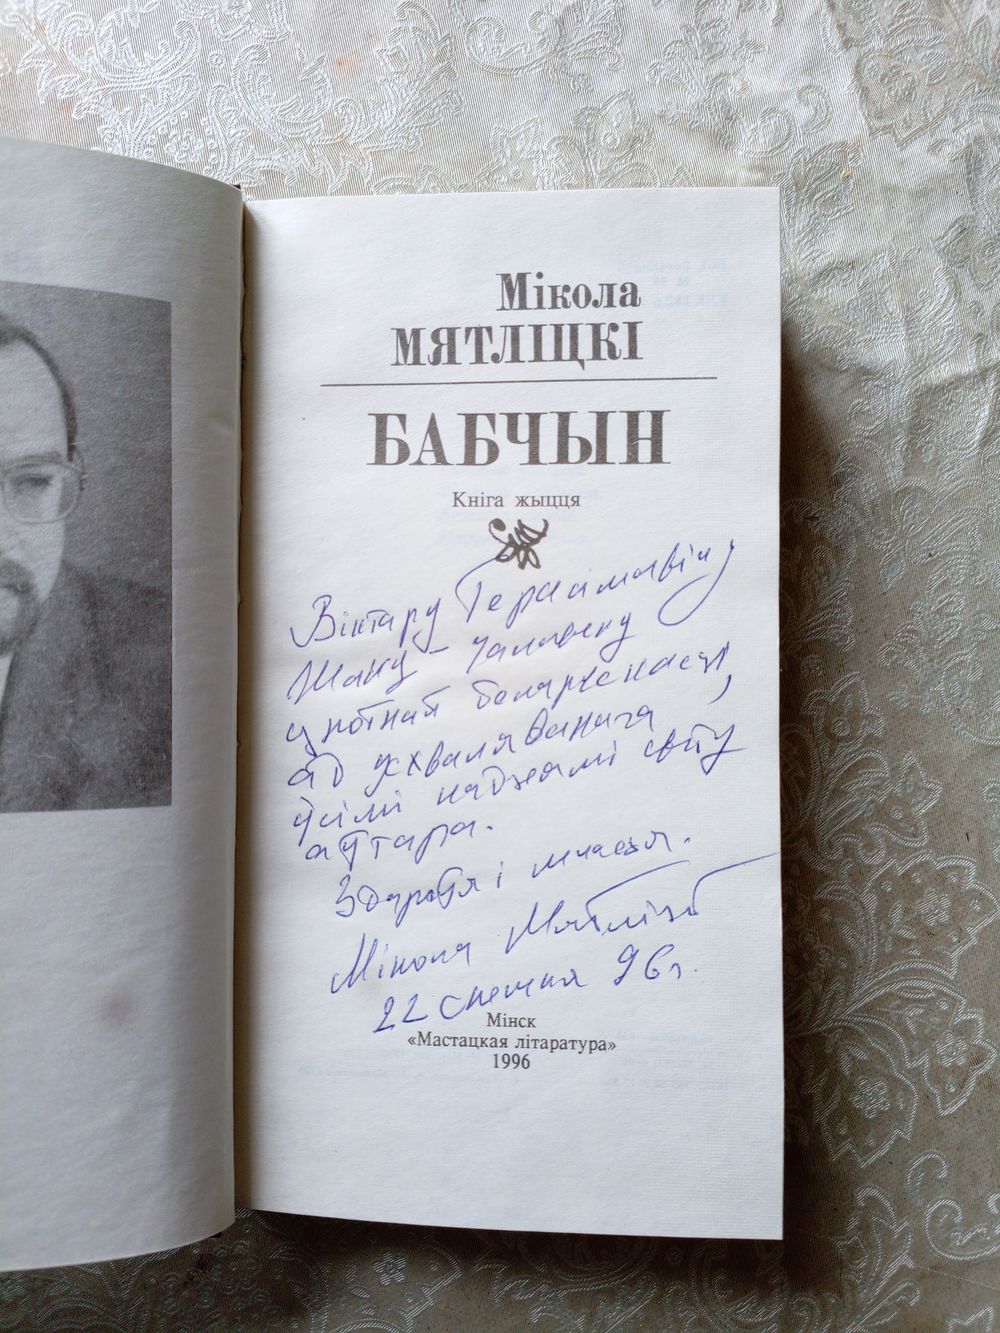 Мікола
МЯТЛІЦКІ
БАБЧЫН
Кніга жыцця
Віктару Герасімавічу
Шаку - чалавеку
роднай беларускасці,
ад усхваляванага
ўсімі надзеямі свету
аўтара.
Здароўя і шчасця.
Мікола Мятліцкі
22 снежня 96 г.
Мінск
«Мастацкая літаратура»
1996